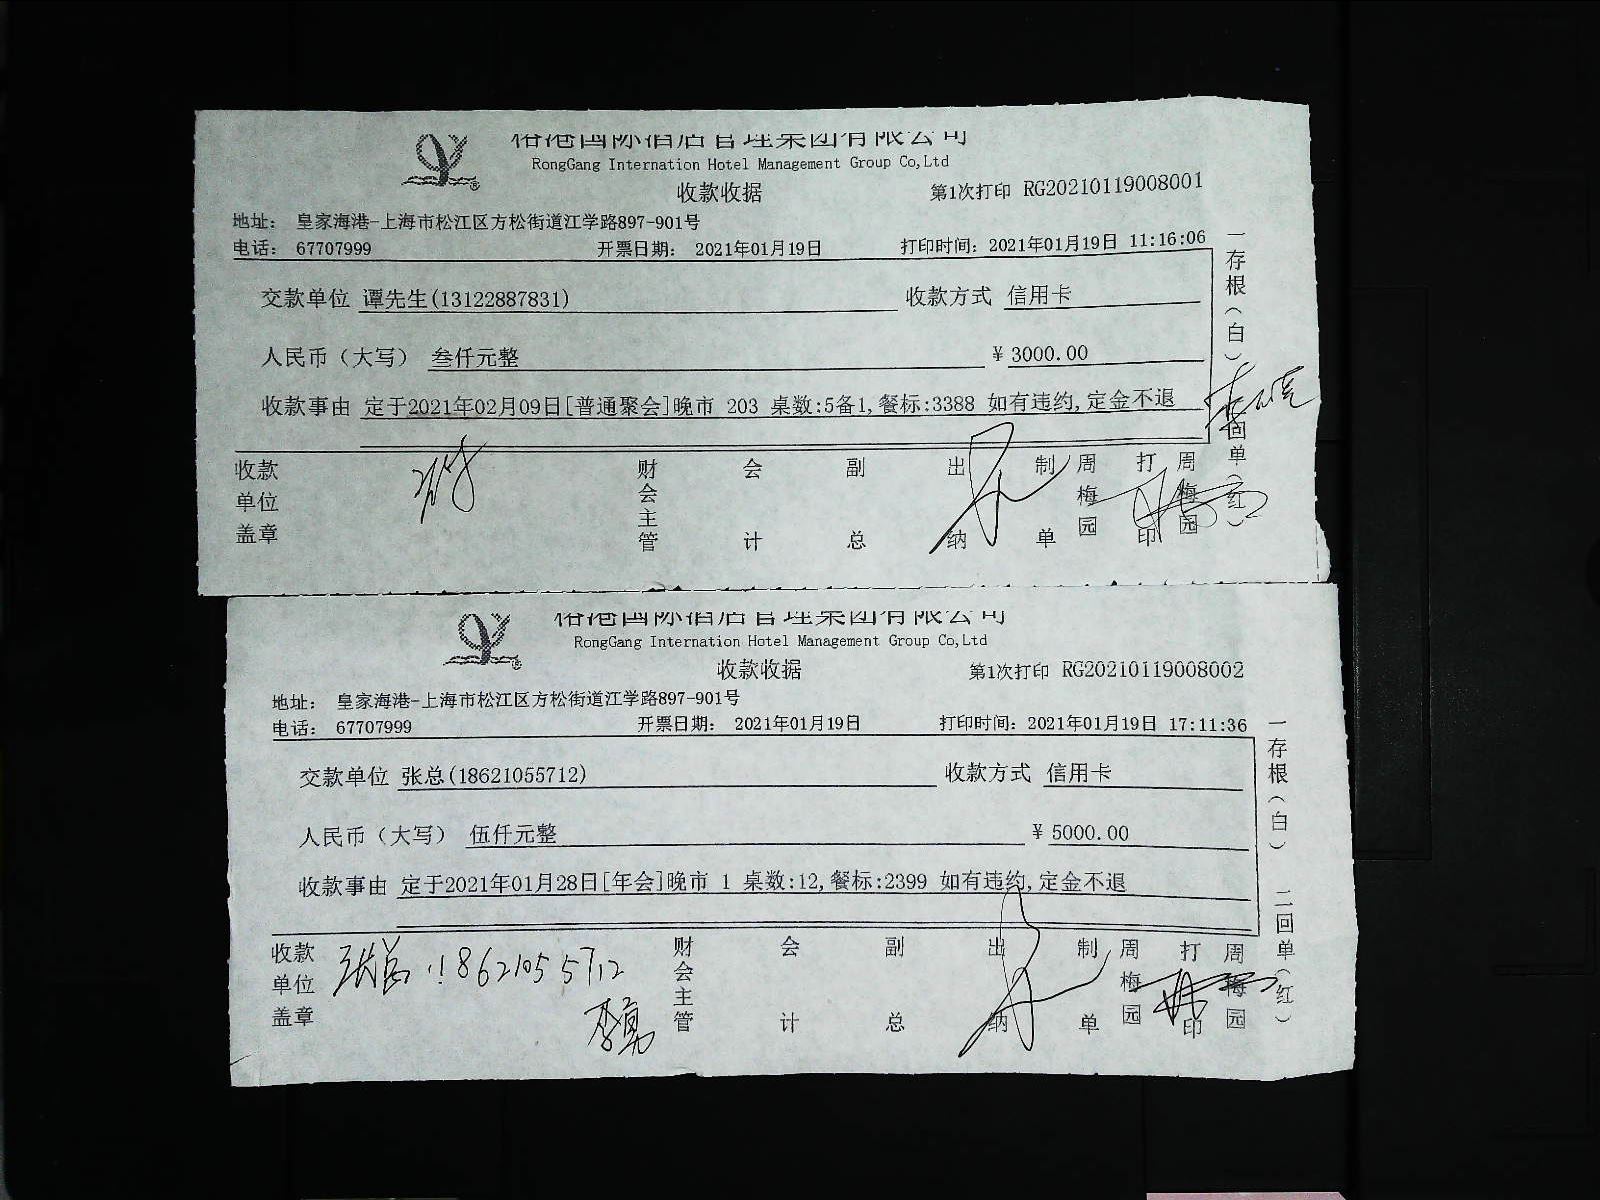 RongGang Internation Hotel Management Group Co,Ltd
收款收据
第1次打印 RG20210119008001
地址: 皇家海港-上海市松江区方松街道江学路897-901号
电话: 67707999 开票日期: 2021年01月19日 打印时间: 2021年01月19日 11:16:06
交款单位 谭先生(13122887831) 收款方式 信用卡
人民币(大写) 叁仟元整 ¥ 3000.00
收款事由 定于2021年02月09日[普通聚会]晚市 203 桌数:5备1,餐标:3388 如有违约,定金不退
一存根(白) 回单(红)
收款单位盖章 财会主管 会计 副总 出纳 制单 周梅园 打印 周梅园
RongGang Internation Hotel Management Group Co,Ltd
收款收据
第1次打印 RG20210119008002
地址: 皇家海港-上海市松江区方松街道江学路897-901号
电话: 67707999 开票日期: 2021年01月19日 打印时间: 2021年01月19日 17:11:36
交款单位 张总(18621055712) 收款方式 信用卡
人民币(大写) 伍仟元整 ¥ 5000.00
收款事由 定于2021年01月28日[年会]晚市 1 桌数:12,餐标:2399 如有违约,定金不退
一存根(白) 二回单(红)
收款单位盖章 张总 18621055712 财会主管 会计 副总 出纳 制单 周梅园 打印 周梅园
李勇